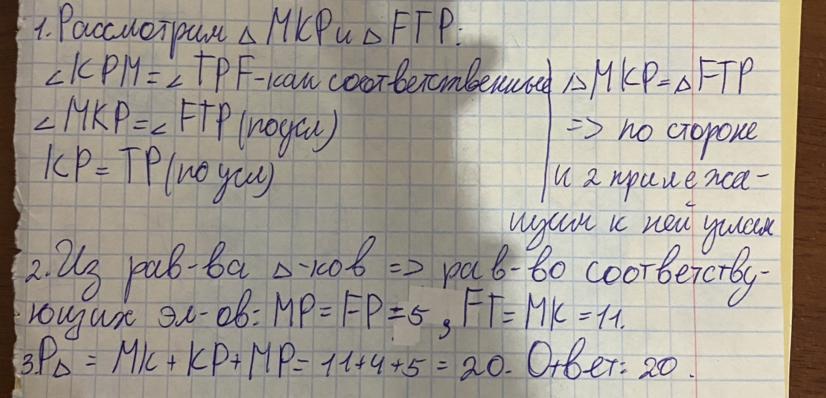 1. Рассмотрим △MKP и △FTP:
∠KPM = ∠TPF - как соответственные
∠MKP = ∠FTP (по усл)
KP = TP (по усл)
△MKP = △FTP
=> по стороне
и 2 прилежа-
щим к ней углам
2. Из рав-ва △-ков => рав-во соответству-
ющих эл-ов: MP = FP = 5, FT = MK = 11.
3. P△ = MK + KP + MP = 11 + 4 + 5 = 20. Ответ: 20.